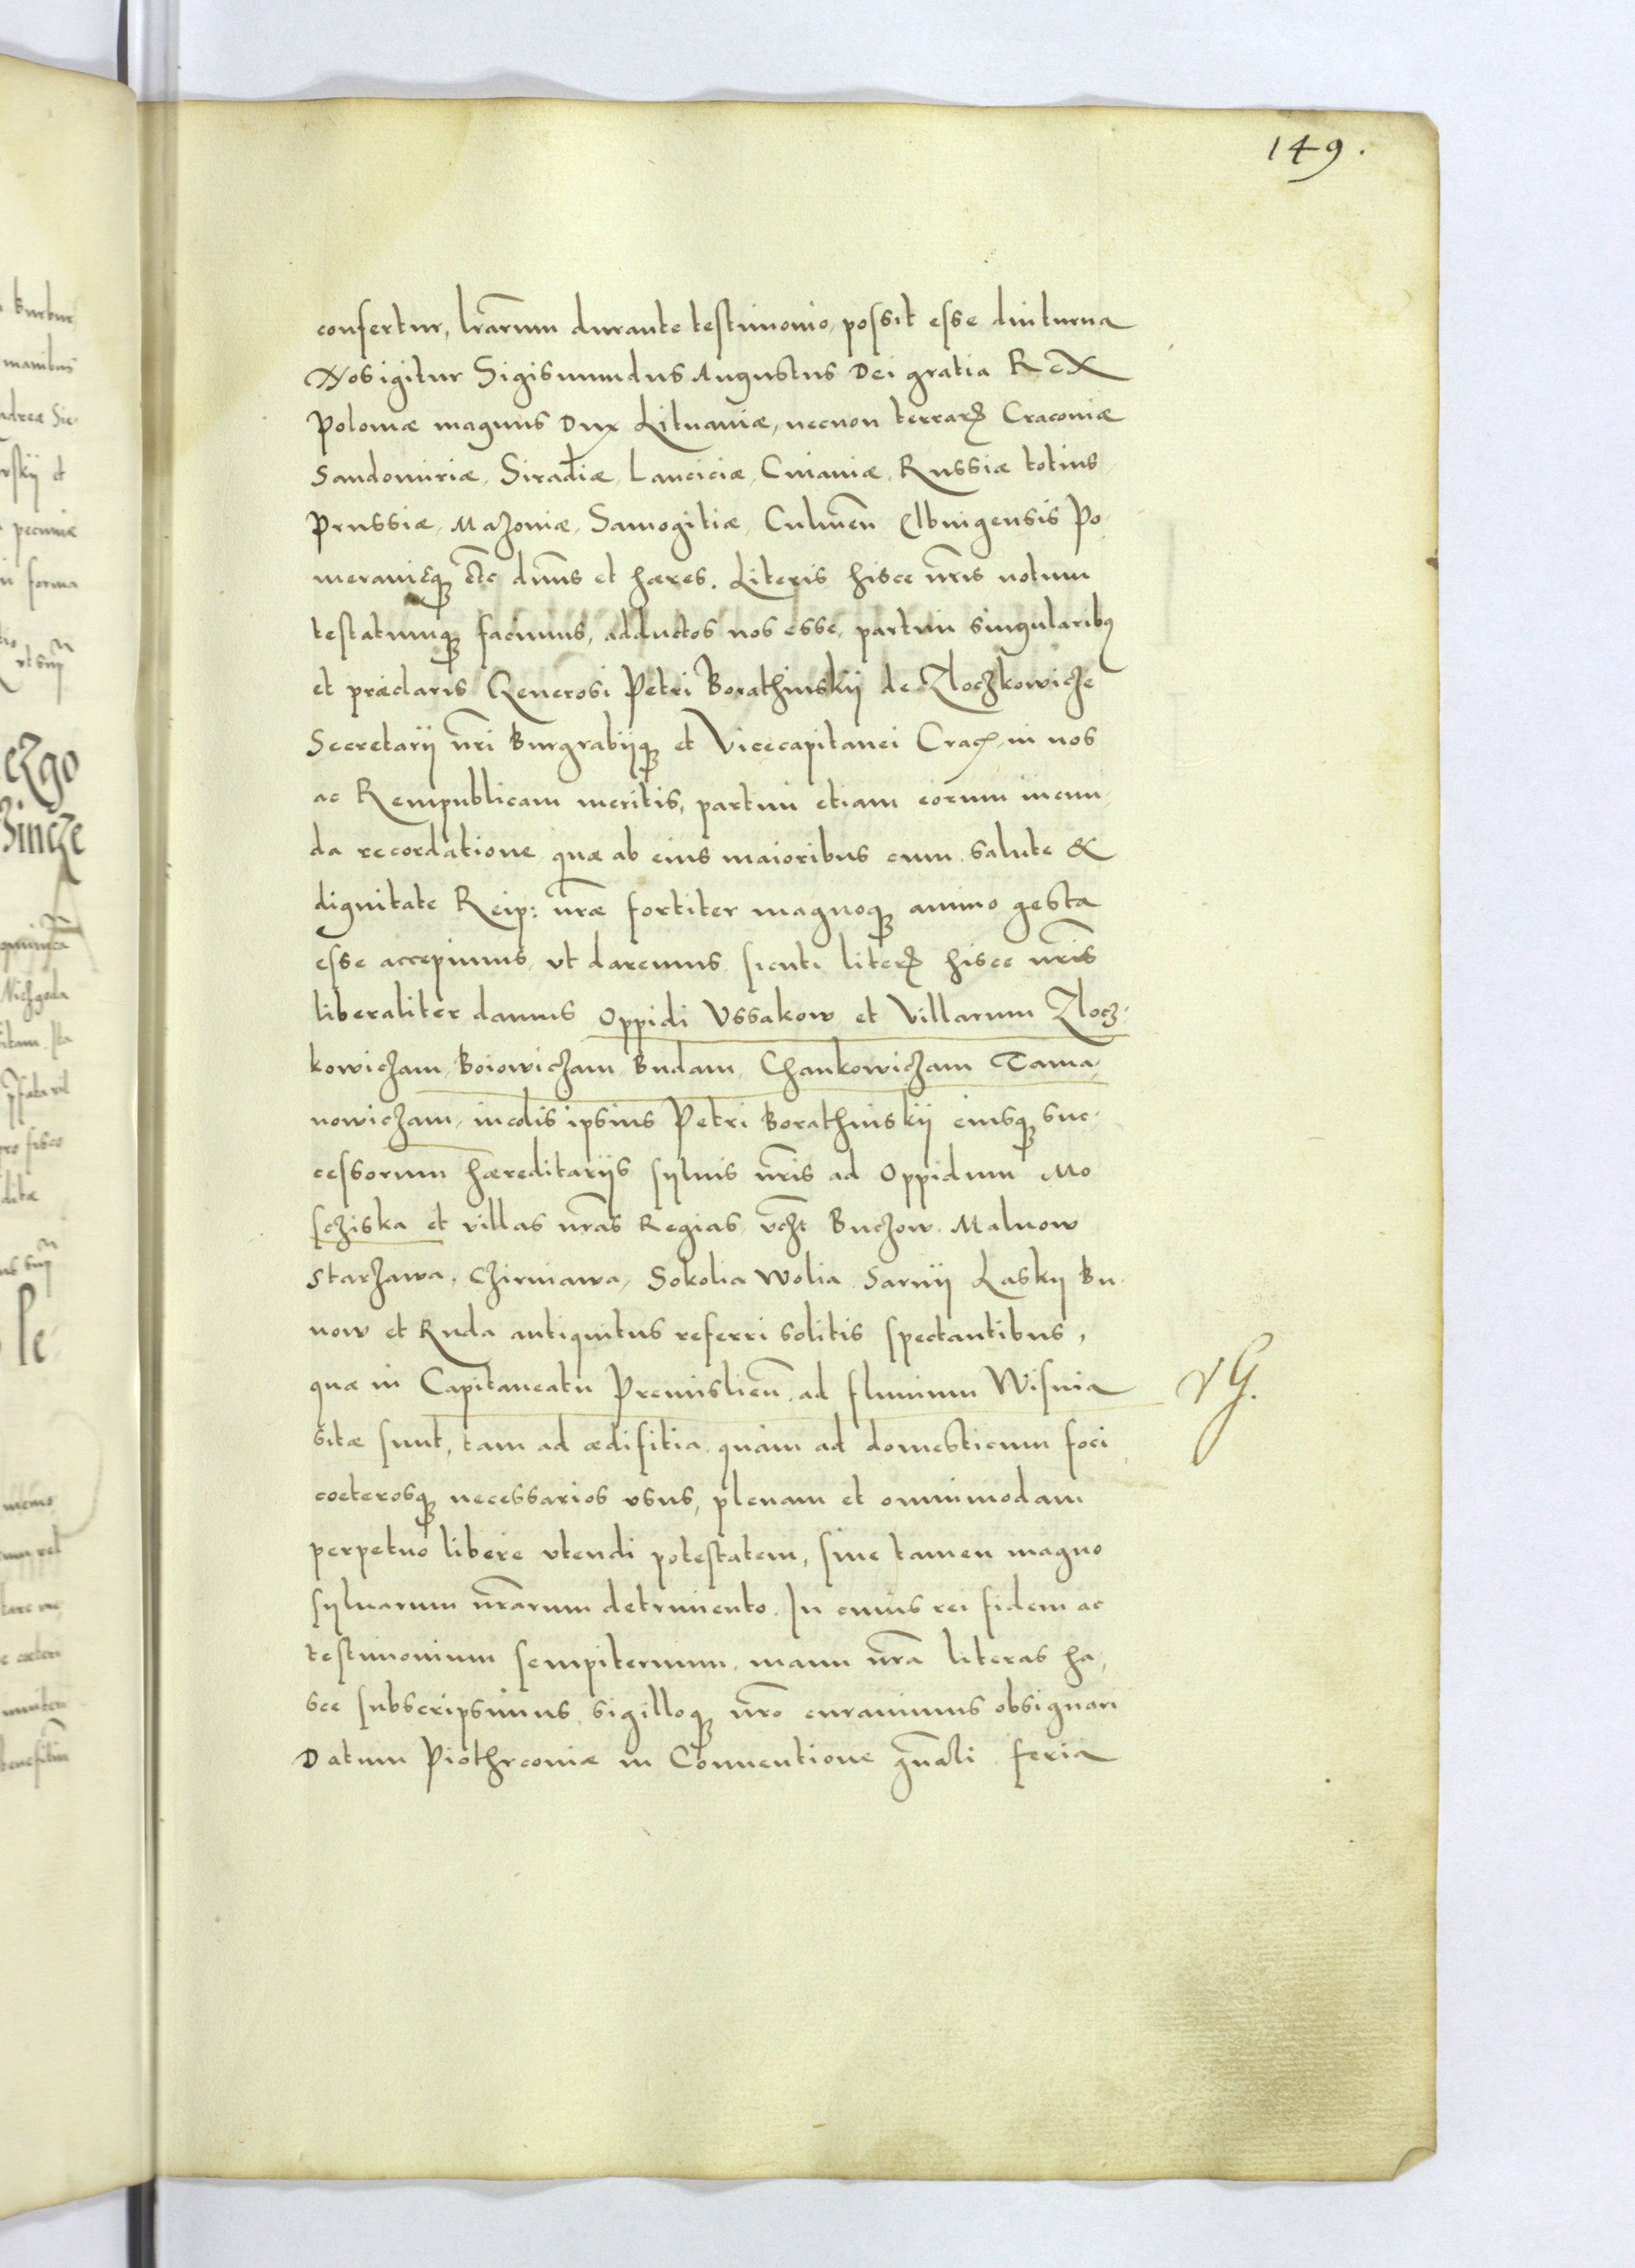 149.
confertur, lrārum durante testimonio, possit esse diuturna
Nos igitur Sigismundus Augustus Dei gratia Rex
Poloniæ magnus Dux Lituaniæ, necnon terrarꝝ Cracouiæ
Sandomiriæ, Siradiæ, Lanciciæ, Cuiauiæ, Russiæ totius
Prussiæ, Mazouiæ, Samogitiæ, Culmeñ Elbingensis Po
meranięqꝫ etc dn̄us et hæres. Literis hisce nr̄is notum
testatumqꝫ facimus, adductos nos esse, partim singularibꝰ
et præclaris Generosi Petri Borathinskij de Zloczkowicze
Secretarij nr̄i Burgrabijqꝫ et Vicecapitanei Cracꝭ, in nos
ac Rempublicam meritis, partim etiam eorum iucun,
da recordatione quæ ab eius maioribus cum salute &
dignitate Reip: nr̄æ fortiter magnoqꝫ animo gesta
esse accepimus, vt daremus sicuti literꝝ hisce nr̄is
liberaliter damus Oppidi Vssakow et Villarum Zlocz,
kowiczam, Boiowiczam Budam, Chankowiczam Tama,
nowiczam, incolis ipsius Petri Borathinskij eiusqꝫ suc,
cessorum hæreditarijs syluis nr̄is ad Oppidum Mo
sziska et villas nr̄as Regias vc̄zt Buczow Malnow
Starzawa, Czirniawa, Sokolia Wolia Sarnij Laskij Bu,
now et Ruda antiquitus referri solitis spectantibus,
quæ in Capitaneatu Premislieñ ad fluuium Wisnia
sitæ sunt, tam ad ædifitia quàm ad domesticum foci
coeterosqꝫ necessarios vsus, plenam et omnimodam
perpetuo libere vtendi potestatem, sine tamen magno
syluarum nr̄arum detrimento. In cuius rei fidem ac
testimonium sempiternum, manu nr̄a literas ha,
sce subscripsimus sigilloqꝫ nr̄o curauimus obsignari
Datum Piothrcouiæ in Conuentione gn̄ali feria